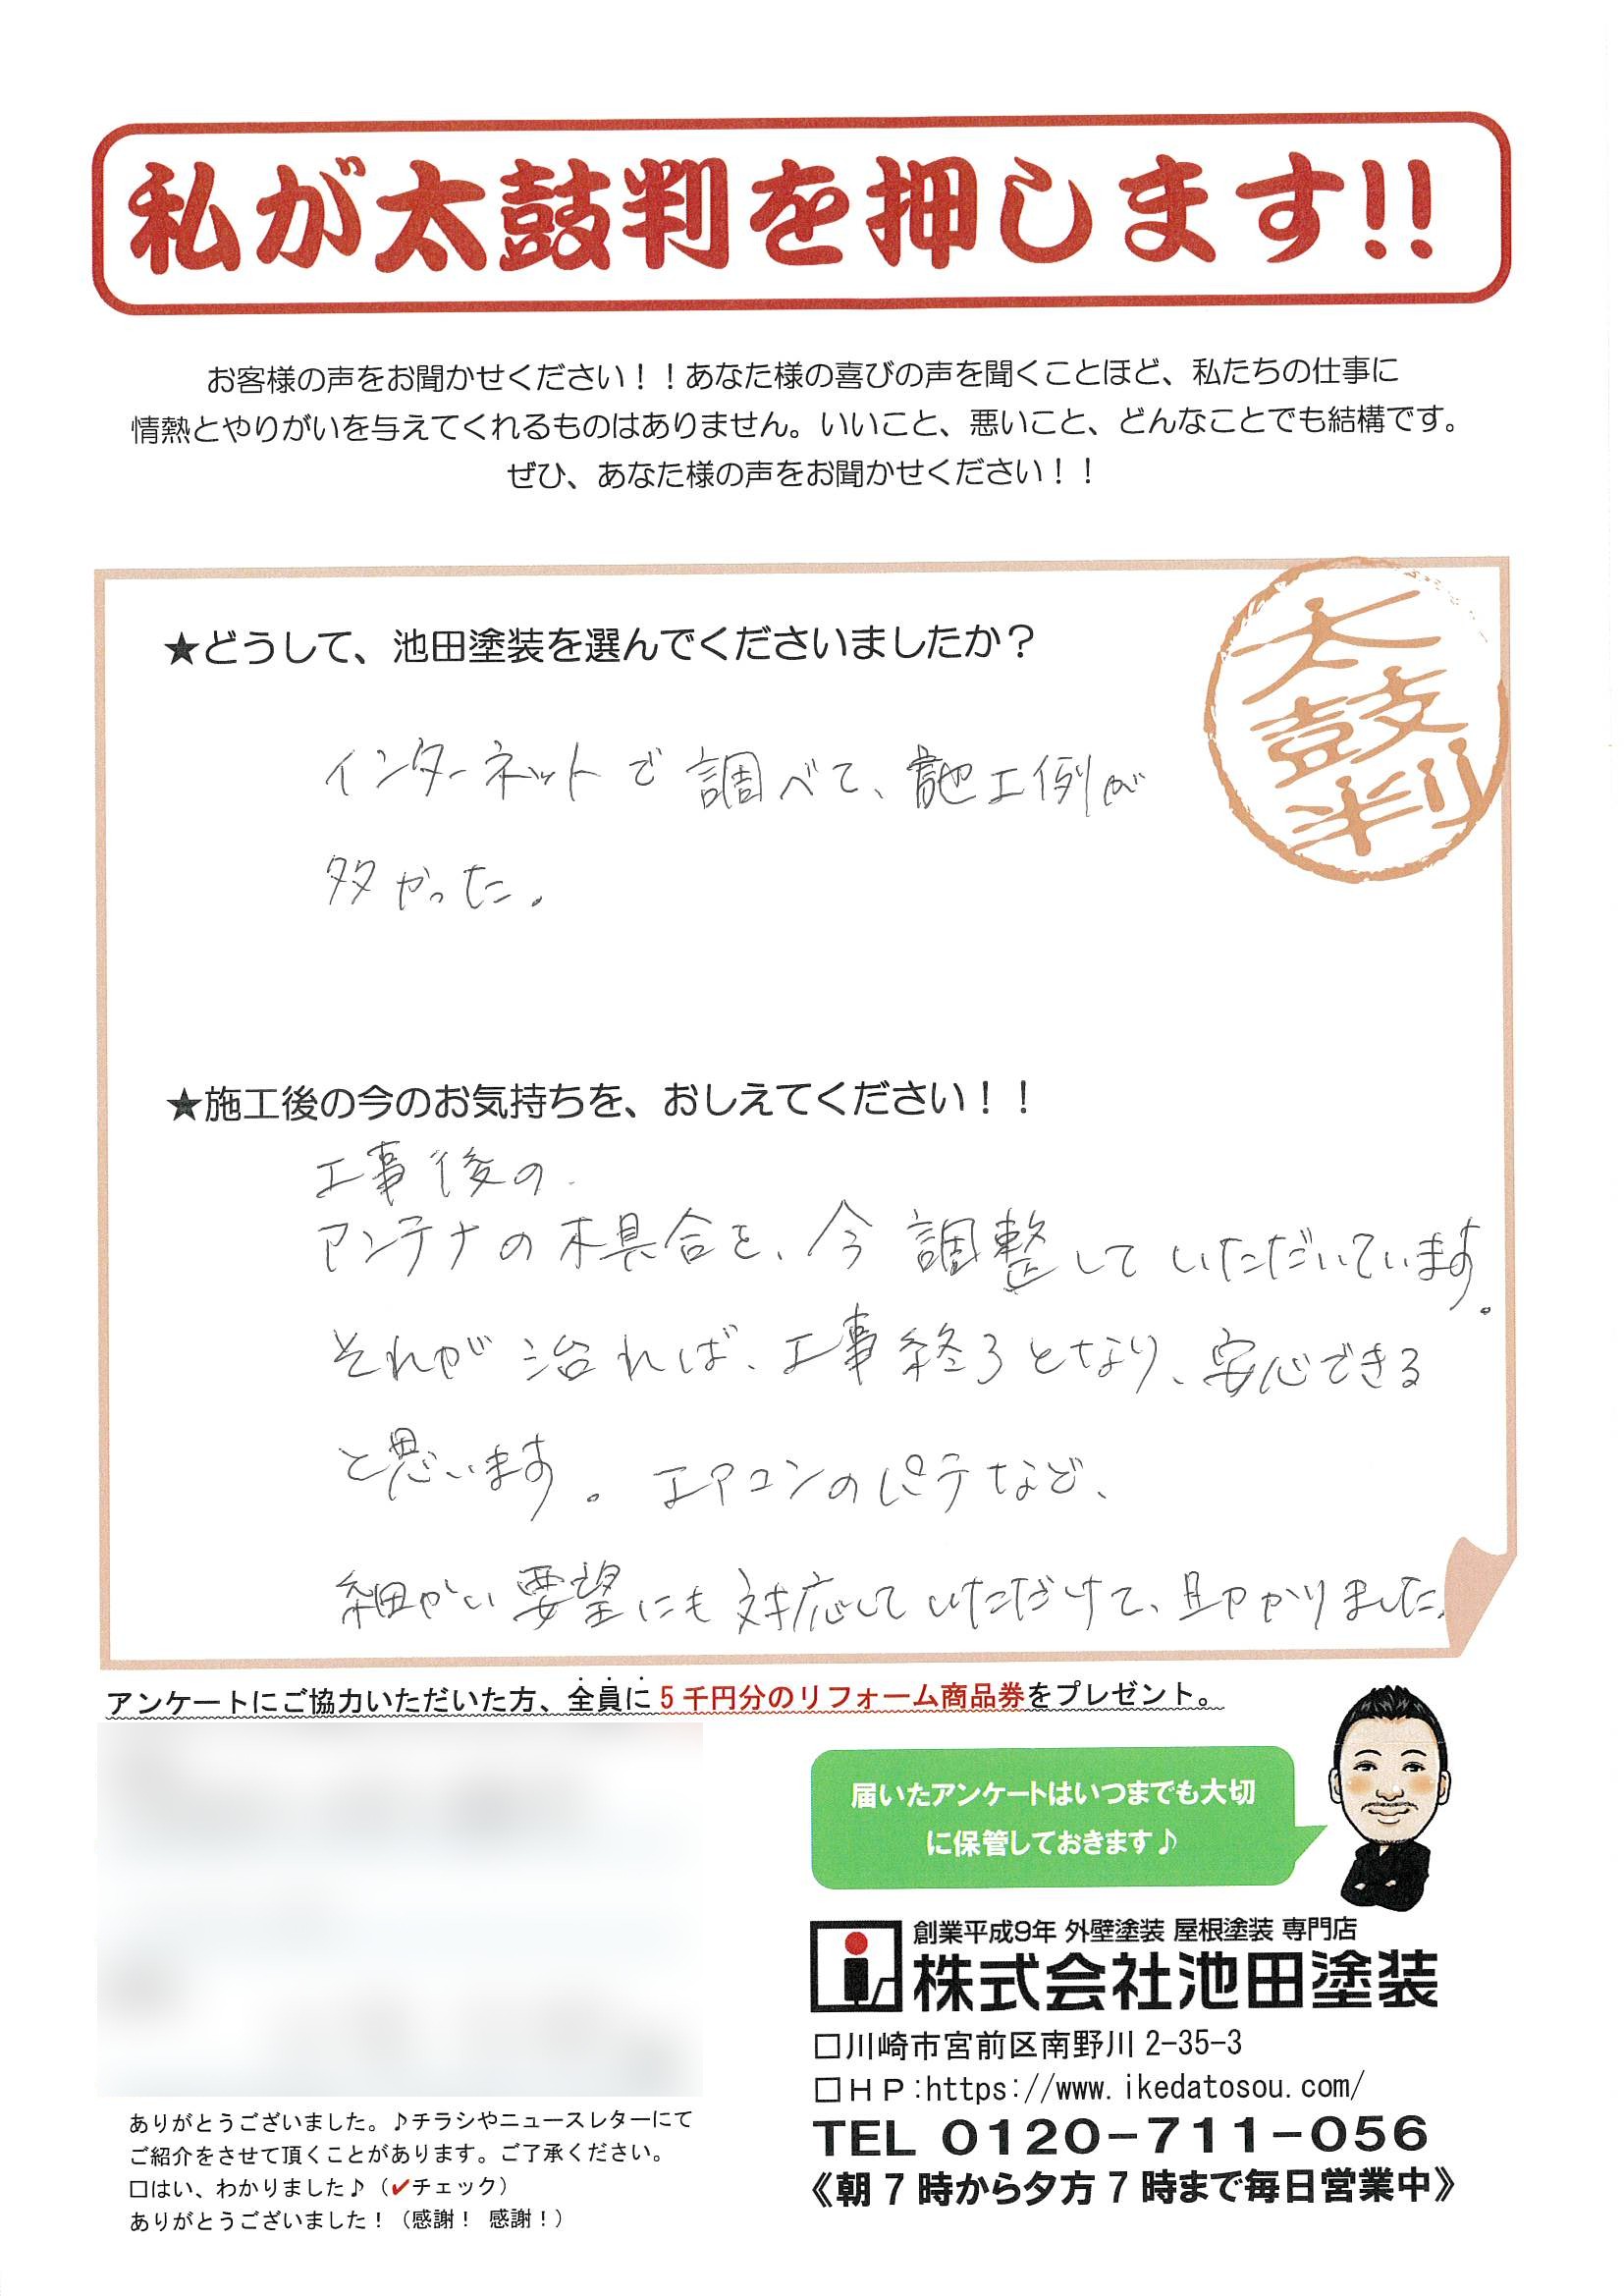 私が太鼓判を押します!!
お客様の声をお聞かせください！！あなた様の喜びの声を聞くことほど、私たちの仕事に
情熱とやりがいを与えてくれるものはありません。いいこと、悪いこと、どんなことでも結構です。
ぜひ、あなた様の声をお聞かせください！！
太鼓判
★どうして、池田塗装を選んでくださいましたか？
インターネットで調べて、施工例が
多かった。
★施工後の今のお気持ちを、おしえてください！！
工事後の
アンテナの不具合を、今調整していただいています。
それが治れば、工事終了となり、安心できる
と思います。エアコンのパテなど、
細かい要望にも対応していただけて、助かりました。
アンケートにご協力いただいた方、全員に５千円分のリフォーム商品券をプレゼント。
届いたアンケートはいつまでも大切
に保管しておきます♪
創業平成9年 外壁塗装 屋根塗装 専門店
株式会社池田塗装
□川崎市宮前区南野川 2-35-3
□ＨＰ:https://www.ikedatosou.com/
TEL 0120-711-056
《朝７時から夕方７時まで毎日営業中》
ありがとうございました。♪チラシやニュースレターにて
ご紹介をさせて頂くことがあります。ご了承ください。
□はい、わかりました♪（✔チェック）
ありがとうございました！（感謝！ 感謝！）